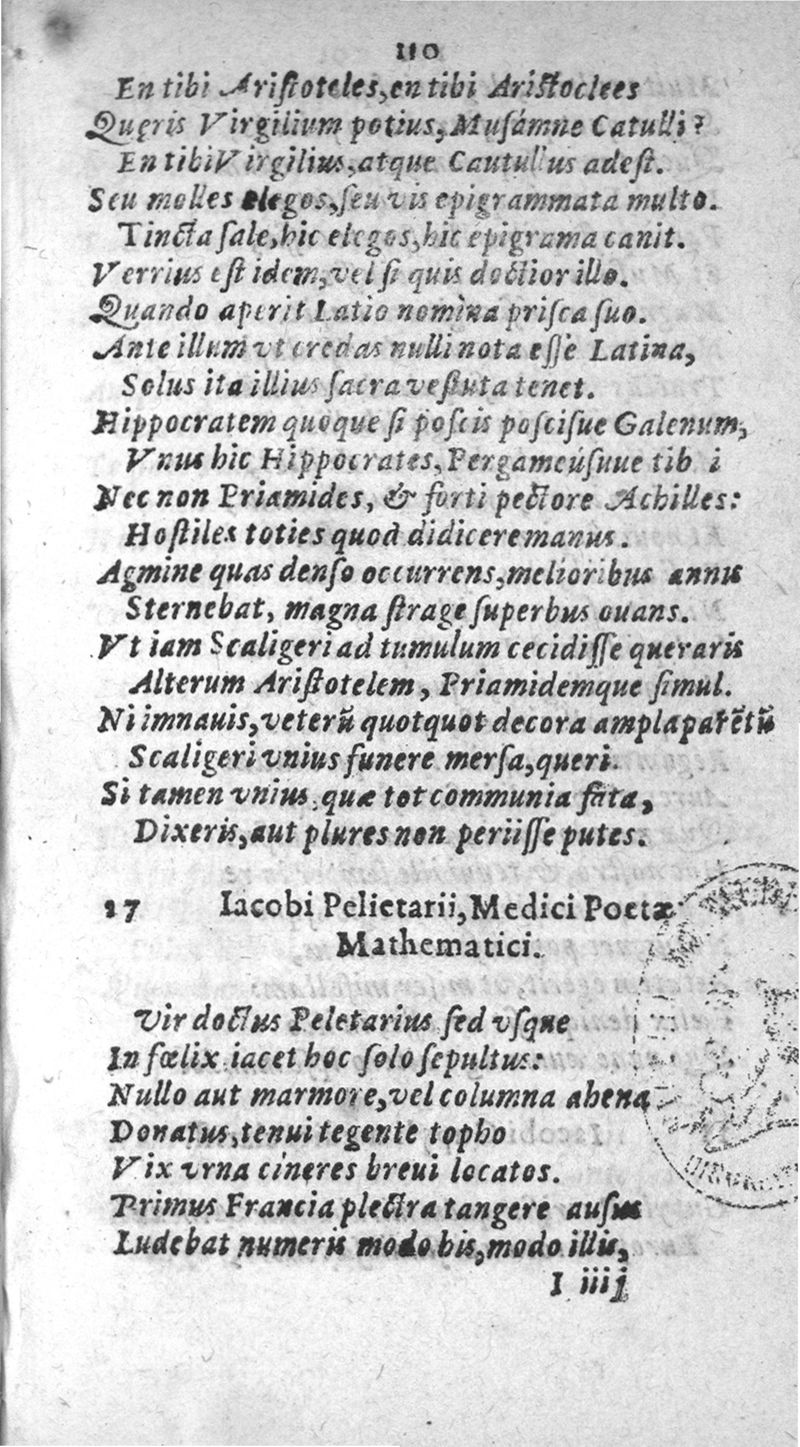 110
En tibi Ariſtoteles,en tibi Ariſtoclees
Quęris Virgilium potius,Muſámne Catulli?
En tibi Virgilius,atque Cautullus adeſt.
Seu molles elegos,ſeu vis epigrammata multo.
Tincta ſale,hic elegos,hic epigrama canit.
Verrius eſt idem,vel ſi quis doctior illo.
Quando aperit Latio nomìna priſca ſuo.
Ante illum vt credas nulli nota eſſe Latina,
Solus ita illius ſacra veſtuta tenet.
Hippocratem quoque ſi poſcis poſciſue Galenum,
Vnus hic Hippocrates,Pergameúſuue tib i
Nec non Priamides, & forti pectore Achilles:
Hoſtiles toties quod didicere manus.
Agmine quas denſo occurrens,melioribus annis
Sternebat, magna ſtrage ſuperbus ouans.
Vt iam Scaligeri ad tumulum cecidiſſe queraris
Alterum Ariſtotelem, Priamidemque ſimul.
Ni imnauis,veterũ quotquot decora ampla patẽtũ
Scaligeri vnius funere merſa,queri.
Si tamen vnius quæ tot communia fata,
Dixeris,aut plures non periiſſe putes.
17 Iacobi Pelietarii,Medici Poetæ
Mathematici.
Vir doctus Peletarius ſed vſque
In fœlix iacet hoc ſolo ſepultus:
Nullo aut marmore,vel columna ahena
Donatus,tenui tegente topho
Vix vrna cineres breui locatos.
Primus Francia plectra tangere auſus
Ludebat numeris modo his,modo illis,
I iiij